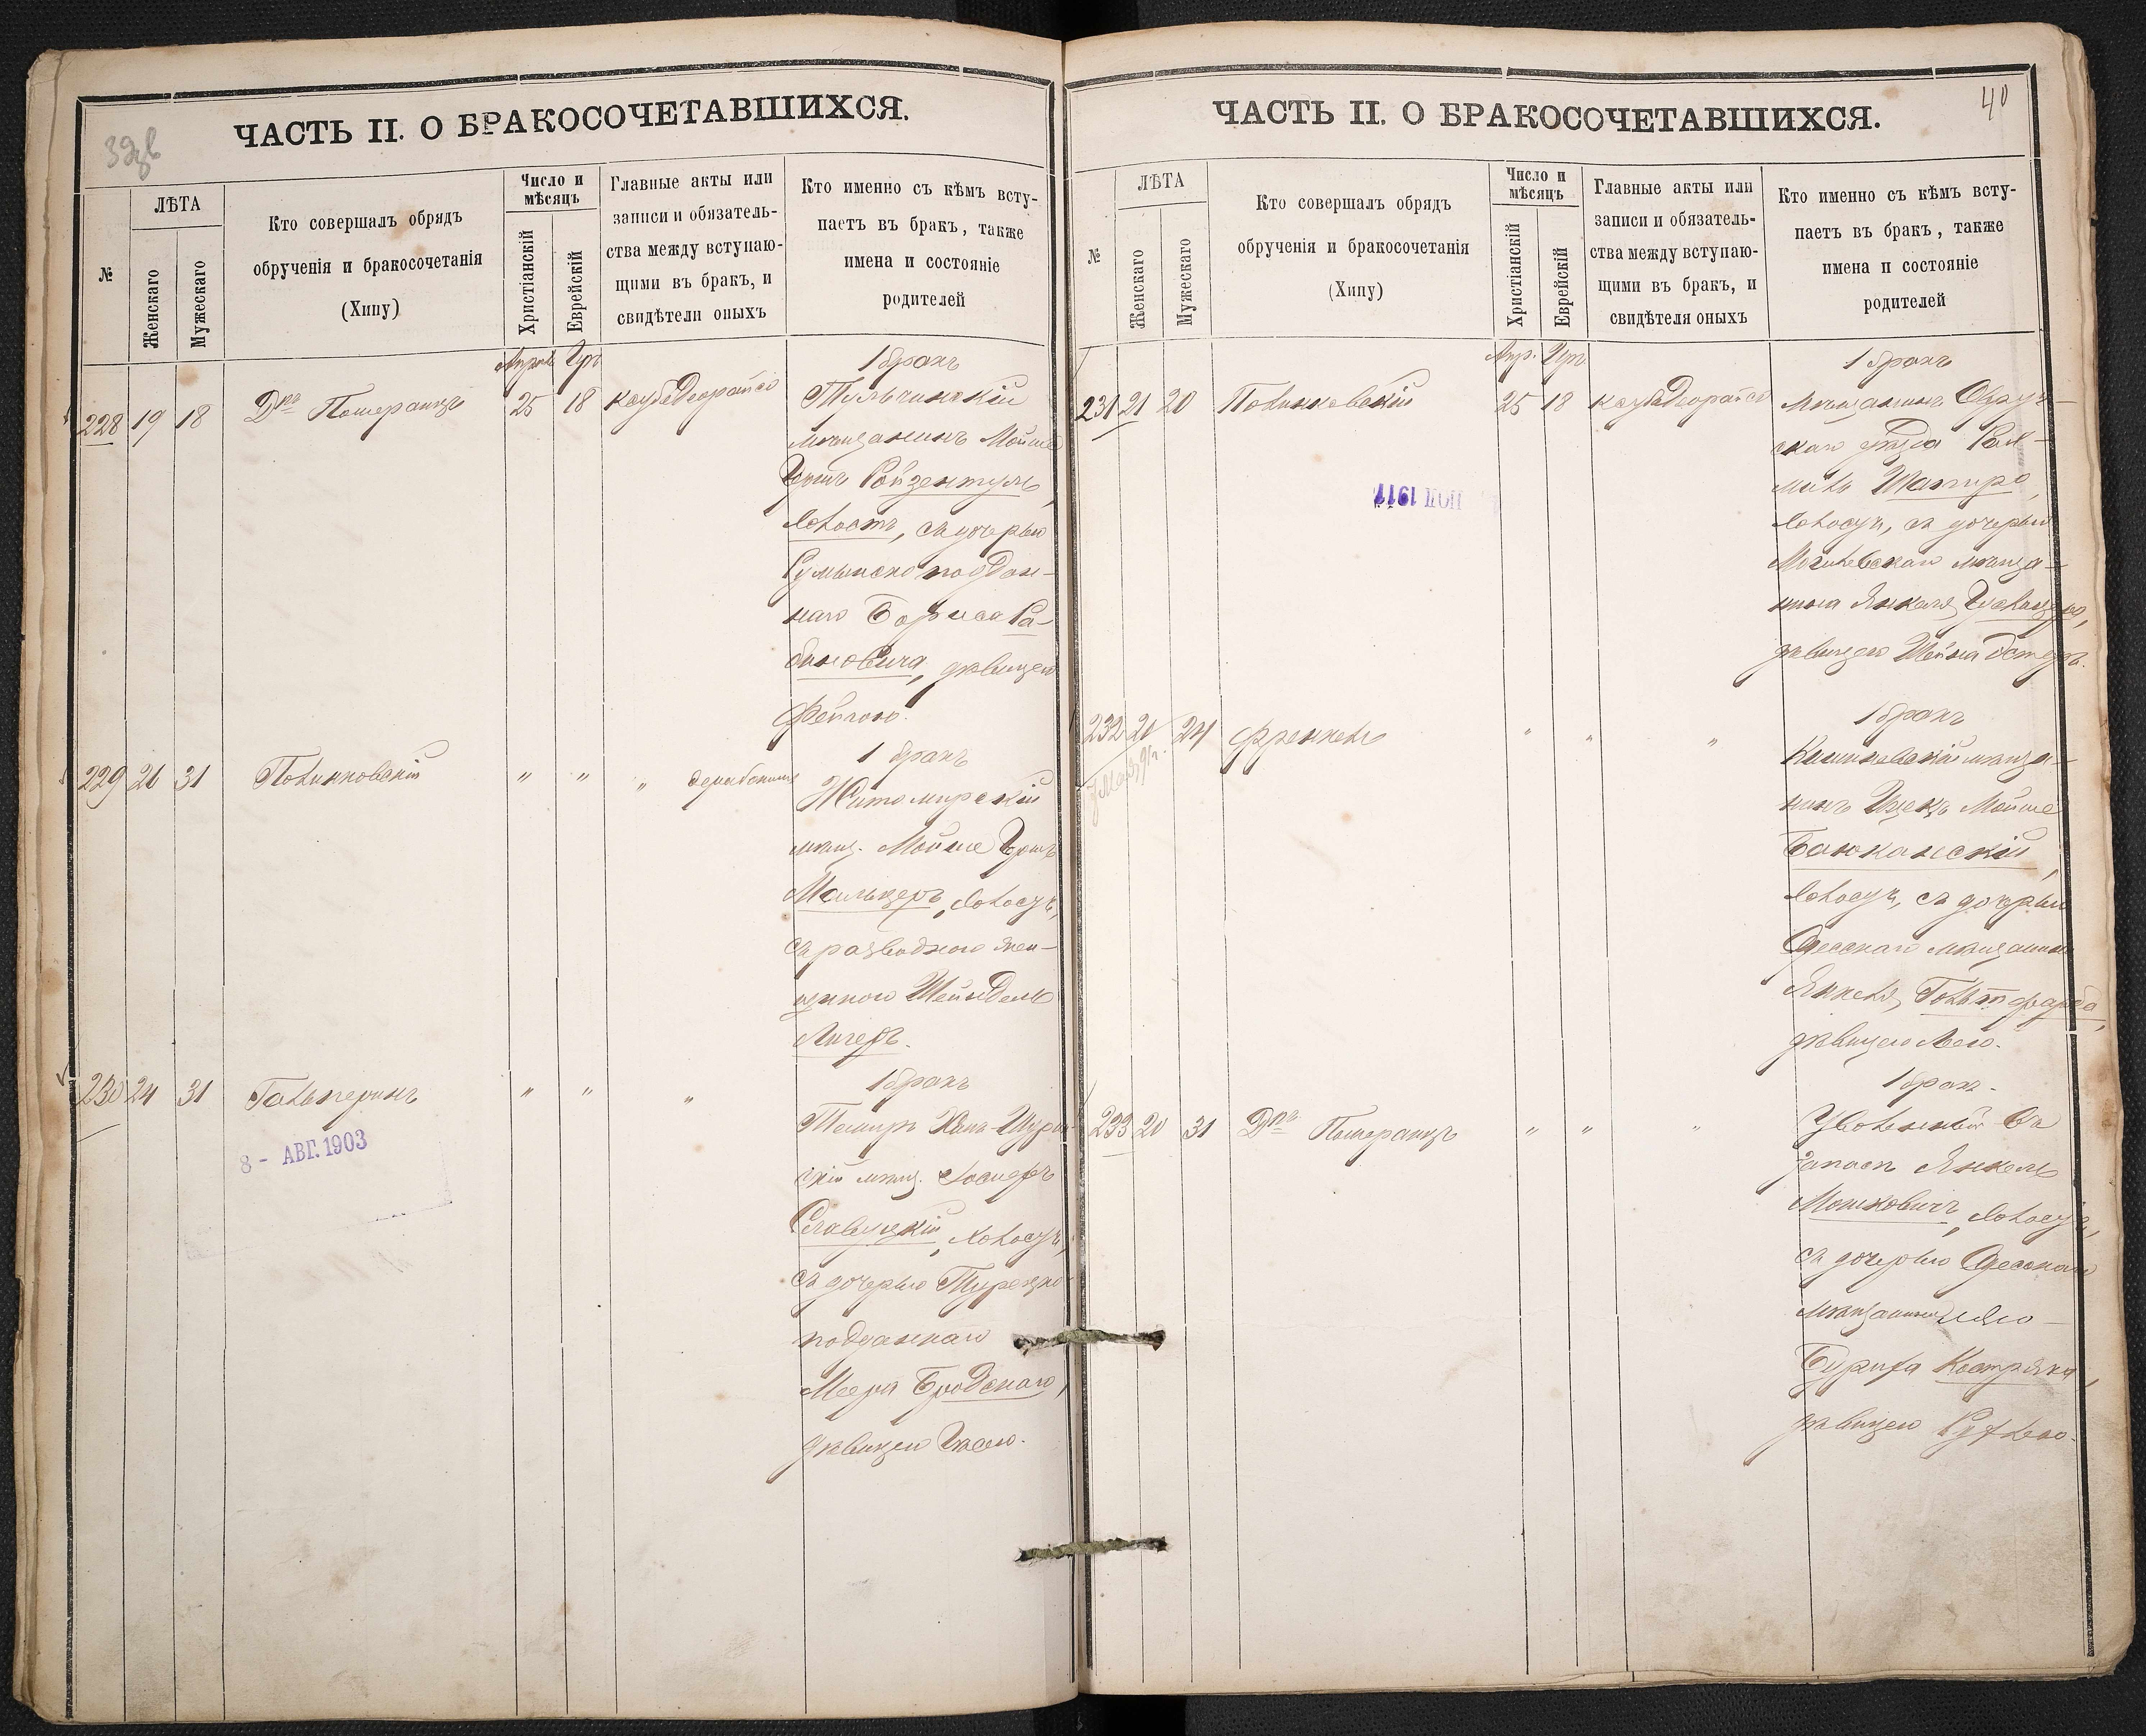 ЧАСТЬ II. О БРАКОСОЧЕТАВШИХСЯ.
№
ЛѢТА
Женскаго
Мужескаго
Кто совершалъ обрядъ
обрученія и бракосочетанія
(Хипу)
Число и
мѣсяцъ
Христіанскій
Еврейскій
Главные акты или
записи и обязатель-
ства между вступаю-
щими въ бракъ, и
свидѣтели оныхъ
Кто именно съ кѣмъ всту-
паетъ въ бракъ, также
имена и состояніе
родителей
228 19 18
Помераницъ
25 18
1 бракъ
Тульчинскій
мѣщанинъ Мойше
Гершъ Ройзентуль,
холостъ, съ дочерью
Румынско поддан-
наго Бориса Ра-
биновича, дѣвицею
Фейгою.
229 26 31
Полинковскій
" " "
1 бракъ
Житомирскій
мѣщ. Мойше Гершъ
Мальцеръ, холостъ,
съ разводною жен-
щиною Шейндель
230 24 31
Гальперинъ
" " "
8 - АВГ. 1903
1 бракъ
Темиръ Ханъ-Шурин-
скій мѣщ. Іосифъ
Славуцкій, холостъ,
съ дочерью Турецко-
подданнаго
Меера Бродскаго,
дѣвицею
40
ЧАСТЬ II. О БРАКОСОЧЕТАВШИХСЯ.
№
ЛѢТА
Женскаго
Мужескаго
Кто совершалъ обрядъ
обрученія и бракосочетанія
(Хипу)
Число и
мѣсяцъ
Христіанскій
Еврейскій
Главные акты или
записи и обязатель-
ства между вступаю-
щими въ бракъ, и
свидѣтеля оныхъ
Кто именно съ кѣмъ всту-
паетъ въ бракъ, также
имена и состояніе
родителей
231 21 20
Полинковскій
Апр.
25 18
1 бракъ
мѣщанинъ Овруч-
скаго уѣзда
Шапиро,
холостъ, съ дочерью
Могилевскаго мѣща-
нина Янкеля
дѣвицею Шейна Эстеръ.
232 20 24
Френкель
" " "
1 бракъ
Кишиневскій мѣща-
нинъ Ицекъ Мойше
Баюканскій,
холостъ, съ дочерью
Одесскаго мѣщанина
Янкеля Гольтфарба,
дѣвицею Леею.
233 20 31
Помераницъ
" " "
1 бракъ.
Уволенный въ
запасъ Янкель
Мошковичъ, холостъ,
съ дочерью Одесскаго
мѣщанина
Буриха Костряка,
дѣвицею Рухлею.